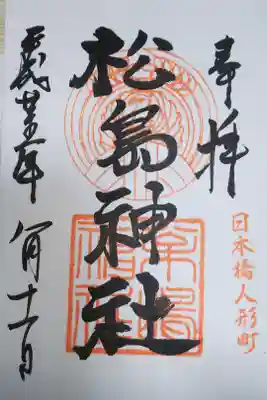 奉拝
日本橋人形町
松島神社
八月十一日